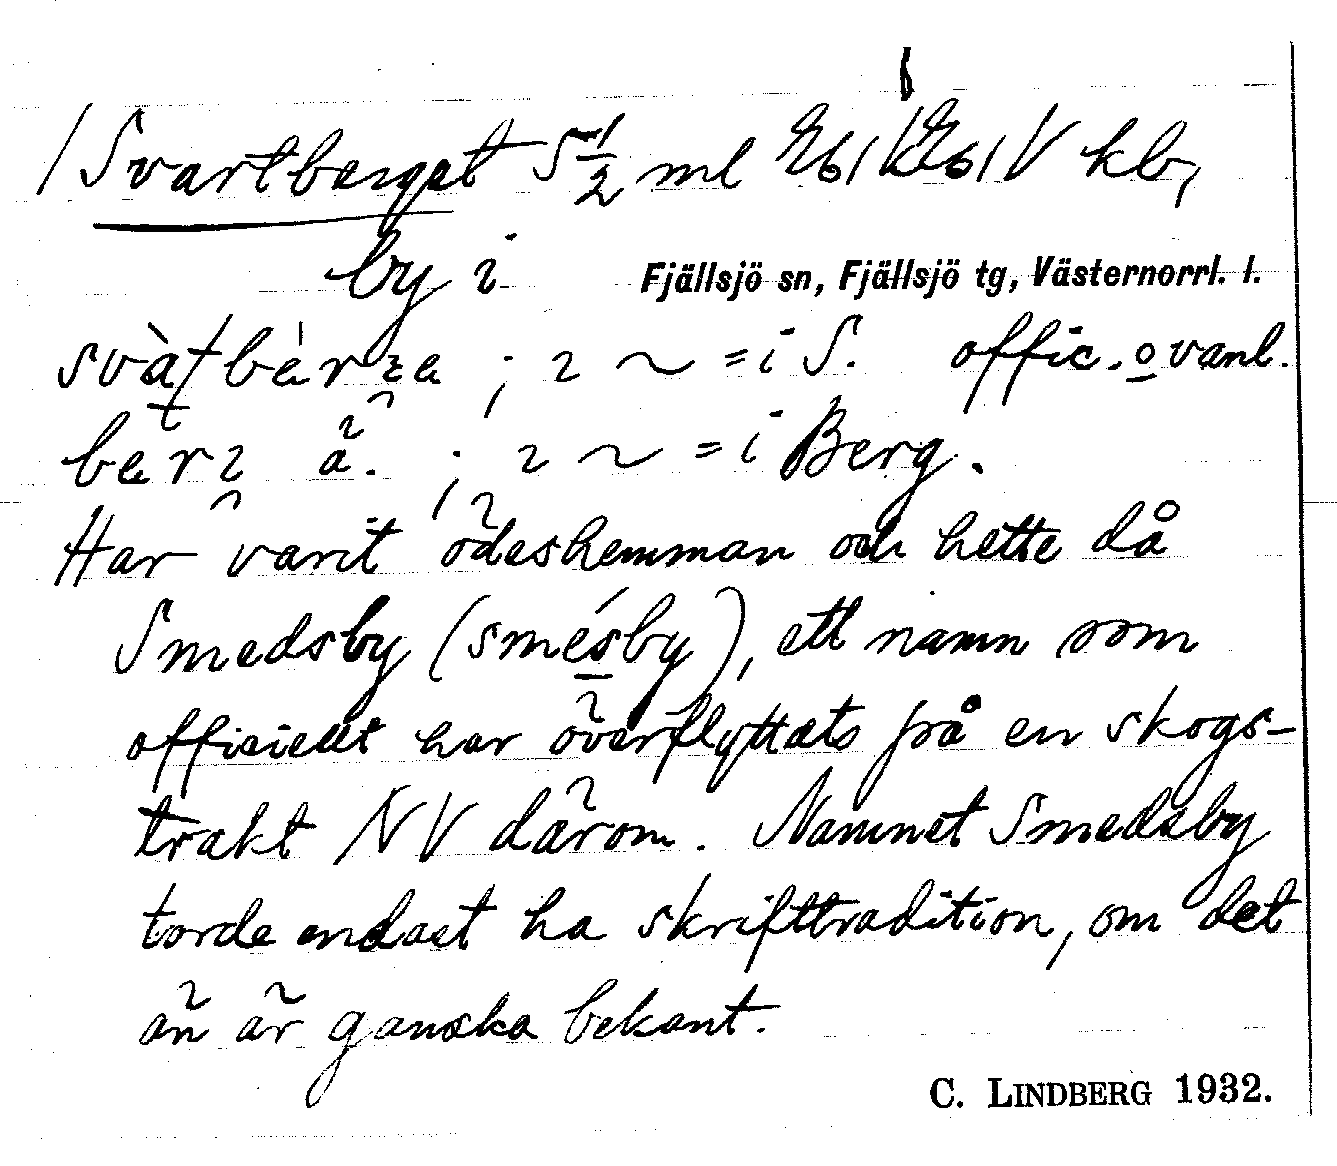 /Svartberget S ½ ml kb,
by i Fjällsjö sn, Fjällsjö tg, Västernorrl. l.
; ~ = i S. offic. o vanl.
ä. ; ~ = i Berg.
Har varit ödeshemman och hette då
Smedsby (smésby), ett namn som
officiellt har överflyttats frå en skogs-
trakt NV därom. Namnet Smedsby
torde endast ha skrifttradition, om det
än är ganska bekant.
C. LINDBERG 1932.